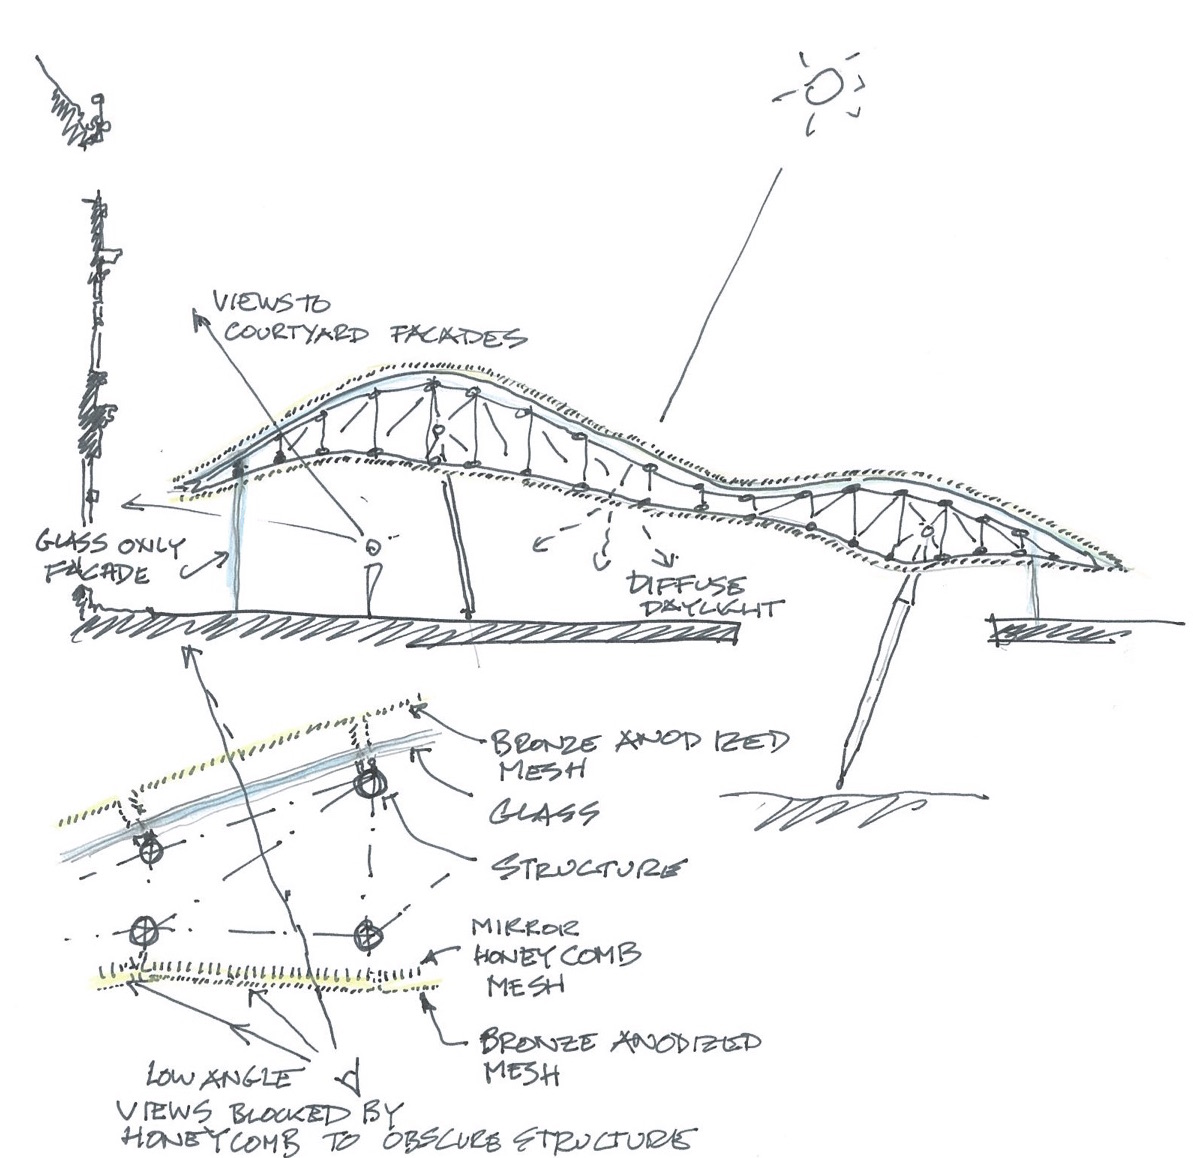 VIEWS TO
COURTYARD FACADES
GLASS ONLY
FACADE
DIFFUSE
DAYLIGHT
BRONZE ANODIZED
MESH
GLASS
STRUCTURE
MIRROR
HONEYCOMB
MESH
BRONZE ANODIZED
MESH
LOW ANGLE
VIEWS BLOCKED BY
HONEYCOMB TO OBSCURE STRUCTURE